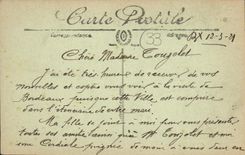 Carte Postale
Correspondance
33
Dax 12-3-21
Chère Madame Tougelot
J'ai été très heureux de recevoir de vos
nouvelles et espère vous voir à la visite de
Bordeaux puisque cette Ville est comprise
dans l'itinéraire de votre mari
Ma fille se joint à moi pour vous présenter
toutes ses amitiés ainsi qu'à Mr Tougelot et un
Cordiale poignée de main à vous deux